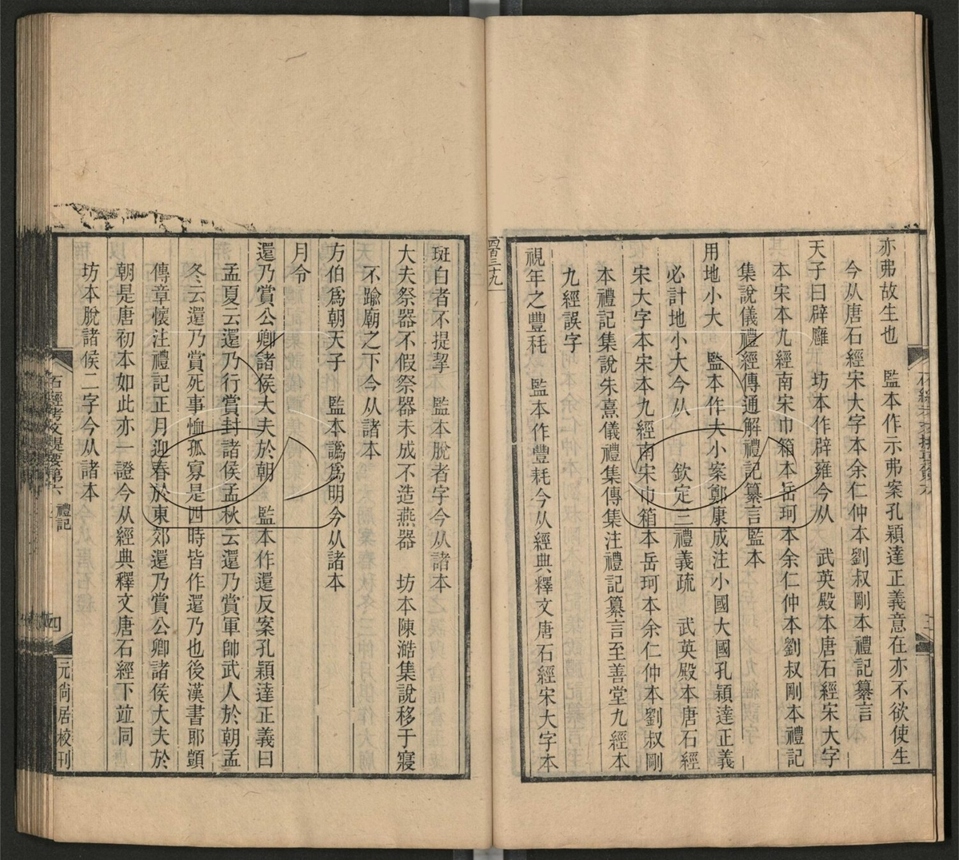 亦弗故生也　監本作示弗案孔穎達正義意在亦不欲使生
今从唐石經宋大字本余仁仲本劉叔剛本禮記纂言
天子曰辟廱　坊本作辟雍今从　武英殿本唐石經宋大字
本宋本九經南宋巾箱本岳珂本余仁仲本劉叔剛本禮記
集說儀禮經傳通解禮記纂言監本
用地小大　監本作大小案鄭康成注小國大國孔穎達正義
必計地小大今从　欽定三禮義疏　武英殿本唐石經
宋大字本宋本九經南宋巾箱本岳珂本余仁仲本劉叔剛
本禮記集說朱熹儀禮集傳集注禮記纂言至善堂九經本
九經誤字
視年之豐秏　監本作豐耗今从經典釋文唐石經宋大字本
百三十九
斑白者不提挈　監本脫者字今从諸本
大夫祭器不假祭器未成不造燕器　坊本陳澔集說移于寢
不踰廟之下今从諸本
方伯爲朝天子　監本譌爲明今从諸本
月令
還乃賞公卿諸侯大夫於朝　監本作還反案孔穎達正義曰
孟夏云還乃行賞封諸侯孟秋云還乃賞軍帥武人於朝孟
冬云還乃賞死事恤孤寡是四時皆作還乃也後漢書郎顗
傳章懷注禮記正月迎春於東郊還乃賞公卿諸侯大夫於
朝是唐初本如此亦一證今从經典釋文唐石經下竝同
坊本脫諸侯二字今从諸本
石經考文提要第六　禮記
四
元尙居校刊